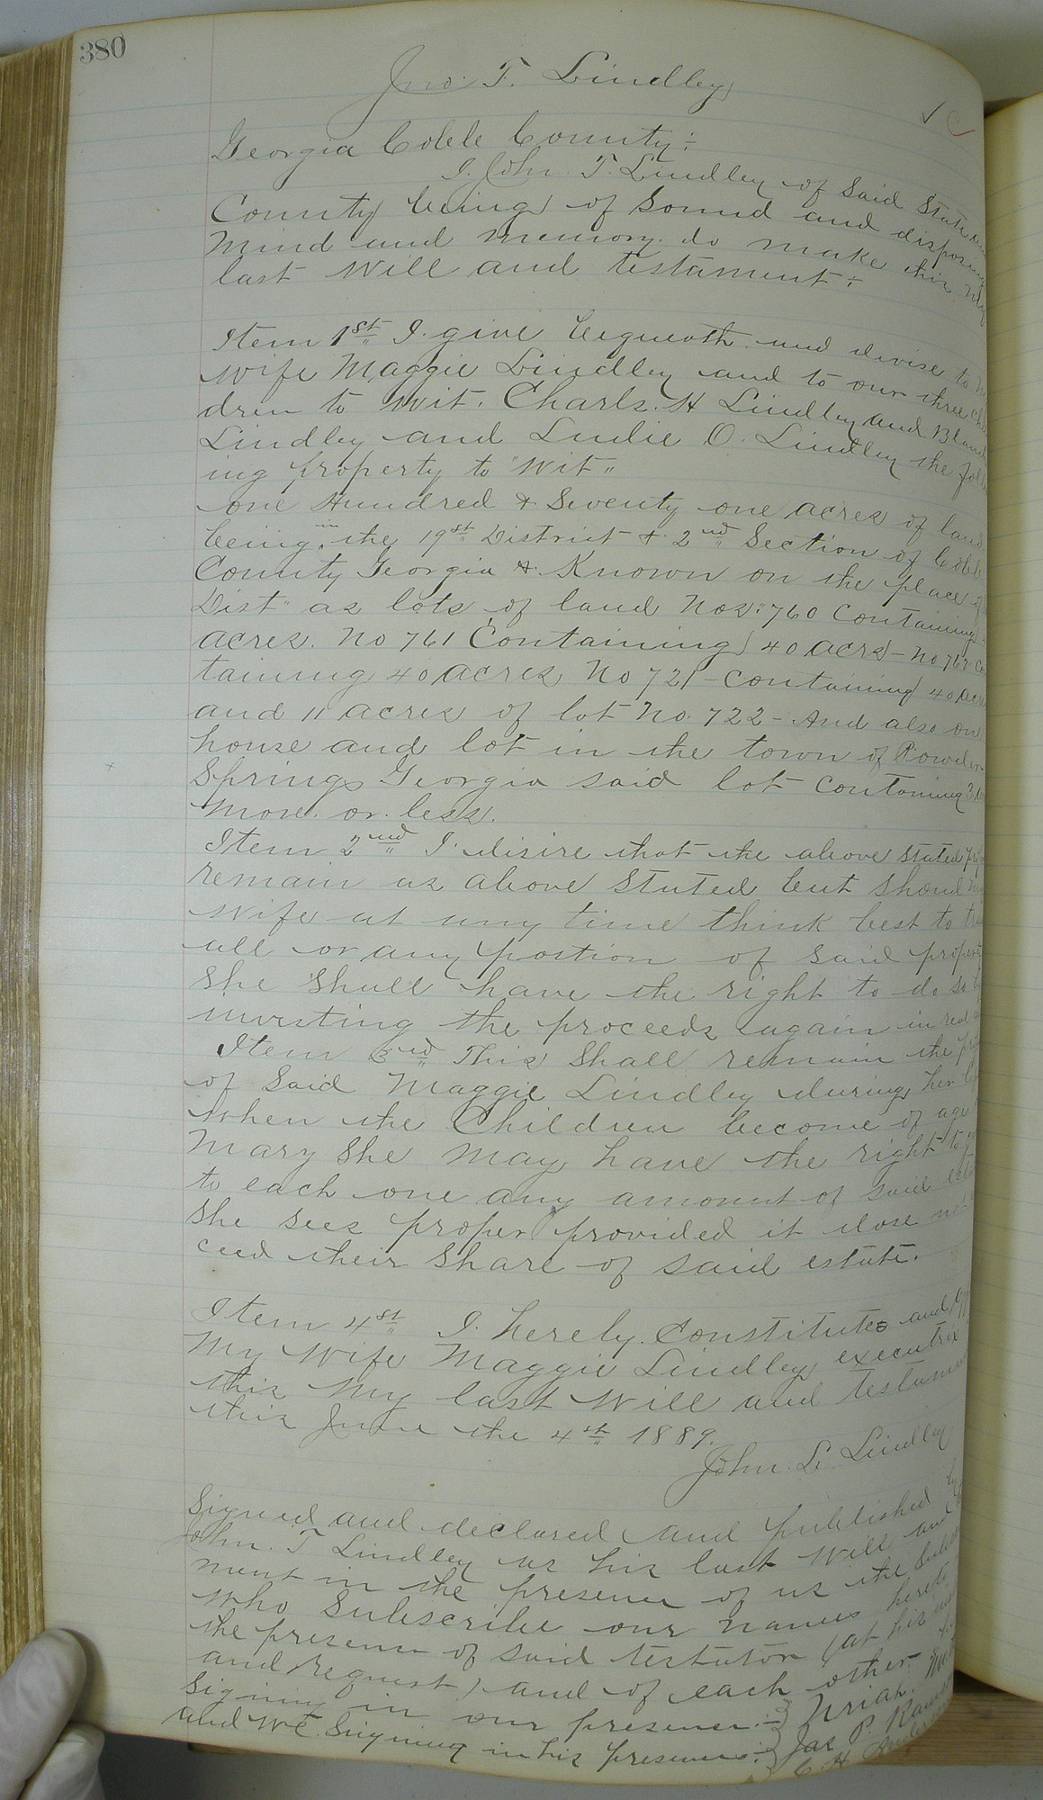 380
Jno. T. Lindley
Georgia Cobb County:
I. John. T. Lindley of Said State
County being of Sound and disposing
Mind and memory. do make this my
last Will and testament:
Item 1st I. give bequeath. and devise to
Wife Maggie Lindley and to our three
dren to Wit. Charls. H Lindley and
Lindley and Ludie O. Lindley the
ing property to "Wit"
one Hundred & Seventy one acres of land
being in the 19st District & 2nd Section of Cobb
County Georgia & Known on the place of
Dist" as lots of land Nos: 760 Containing
acres. No 761 Containing 40 acrs - No 762
taining 40 acres No 721 - Containing 40
and 11 acres of lot No. 722 - And also on
house and lot in the town of Powder
Springs Georgia said lot Containing 3
more. or. less.
Item 2nd I. disire that the above Stated
remain as above Stated but should
wife at any time think best to
all or any portion of said property
She Shall have the right to do so
investing the proceeds again in real
Item 3nd This Shall remain the
of Said Maggie Lindley during her
when the Children become of age
Mary She May have the right to
to each one any amount of said
She sees proper provided it dose
ceed their Share of said estate.
Item 4st I. hereby. Constitutes and
My Wife Maggie Lindley executrix
this My last Will and Testament
this June the 4th 1889.
John. L. Lindley
Signed and declared and published by
John. T Lindley as his last Will and
ment in the presence of us the
who Subscribe our names hereto
the presence of said testator (at his
and request) and of each other.
Signing in our presence:- Uriah.
and We Signing in his presence:- Jas P.
C. H